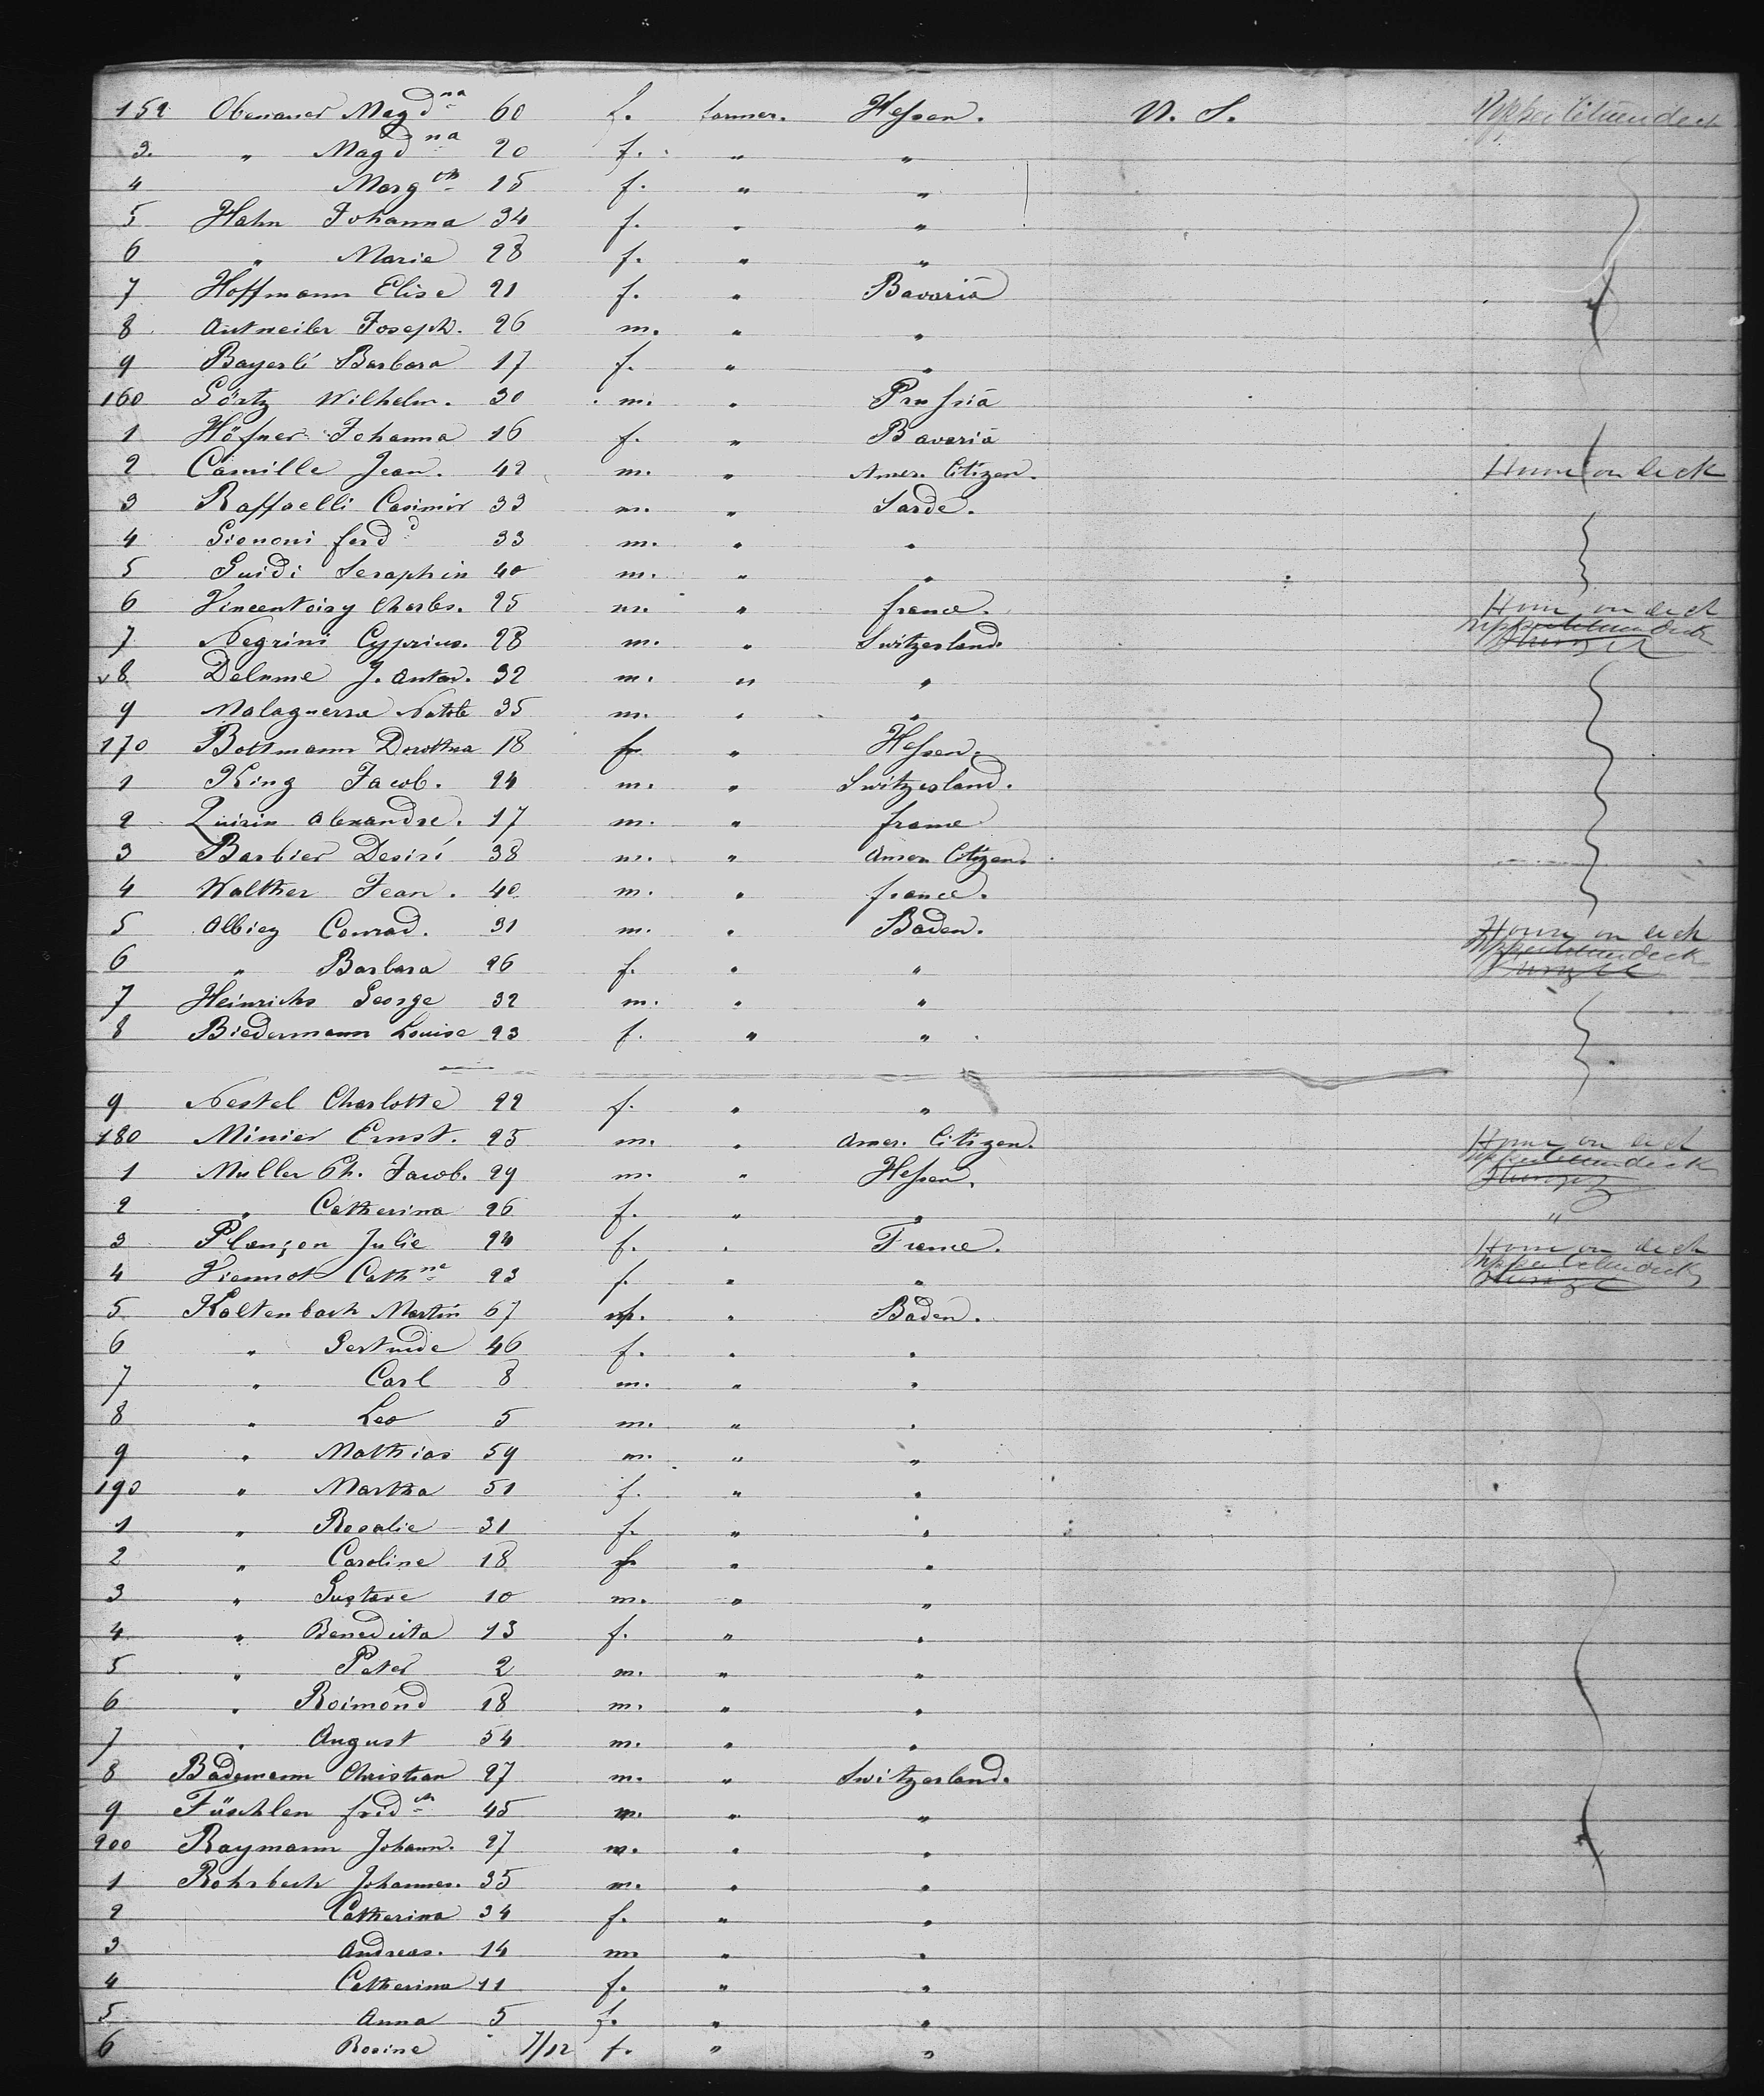 152 Obenauer Magd^na 60 f. Farmer. Hessen. U. S. Upper between deck
3. " Magd^na 20 f. " "
4 Marg^th 15 f. " "
5 Hahn Johanna 34 f. " "
6 " Marie 28 f. " "
7 Hoffmann Elise 21 f. " Bavaria
8 Antweiler Joseph. 26 m. " "
9 Bayerlé Barbara 17 f. " "
160 Görtz Wilhelm. 30 m. " Prussia
1 Höfner Johanna 16 f. " Bavaria
2 Camille Jean. 42 m. " Amer. Citizen. House on deck
3 Raffaelli Casimir 33 m. " Sarde.
4 Giononi ferd^d 33 m. " "
5 Guidi Seraphin 40 m. " "
6 Charles. 25 m. " france. House on deck
7 Negrini Cyprien. 28 m. " Switzerland. Upper between deck
8 Delume J. Anton. 32 m. " "
9 Malaguerra 35 m. " "
170 Bottmann Dorothea 18 f. " Hessen.
1 King Jacob. 24 m. " Switzerland.
2 Quirin Alexandre. 17 m. " france
3 Barbier Desiré 38 m. " Amer. Citizen.
4 Walther Jean. 40 m. " france.
5 Albiez Conrad. 31 m. " Baden. House on deck
6 " Barbara 26 f. " " Upper between deck
7 Heinrichs George 32 m. " "
8 Biedermann Louise 23 f. " "
9 Nestel Charlotte 22 f. " "
180 Minier Ernst. 25 m. " Amer. Citizen. House on deck
1 Muller Ch. Jacob. 29 m. " Hessen. Upper between deck
2 " Catherina 26 f. " " "
3 Plançon Julie 24 f. " France. House on deck
4 Viennot Cath^ne 23 f. " " Upper between deck
5 Kaltenbach Martin 67 m. " Baden.
6 " Gertrude 46 f. " "
7 " Carl 8 m. " "
8 " Leo 5 m. " "
9 " Mathias 59 m. " "
190 " Martha 51 f. " "
1 " Rosalie 31 f. " "
2 " Caroline 18 f. " "
3 " Gustave 10 m. " "
4 " Benedicta 13 f. " "
5 " Peter 2 m. " "
6 " Roimond 18 m. " "
7 " August 54 m. " "
8 Bademann Christian 27 m. " Switzerland.
9 Füschlen frid^ch 45 m. " "
200 Raymann Johann. 27 m. " "
1 Rohrbach Johannes. 35 m. " "
2 Catherina 34 f. " "
3 Andreas. 14 m " "
4 Catherina 11 f. " "
5 Anna 5 f. " "
6 Rosine 7/12 f. " "